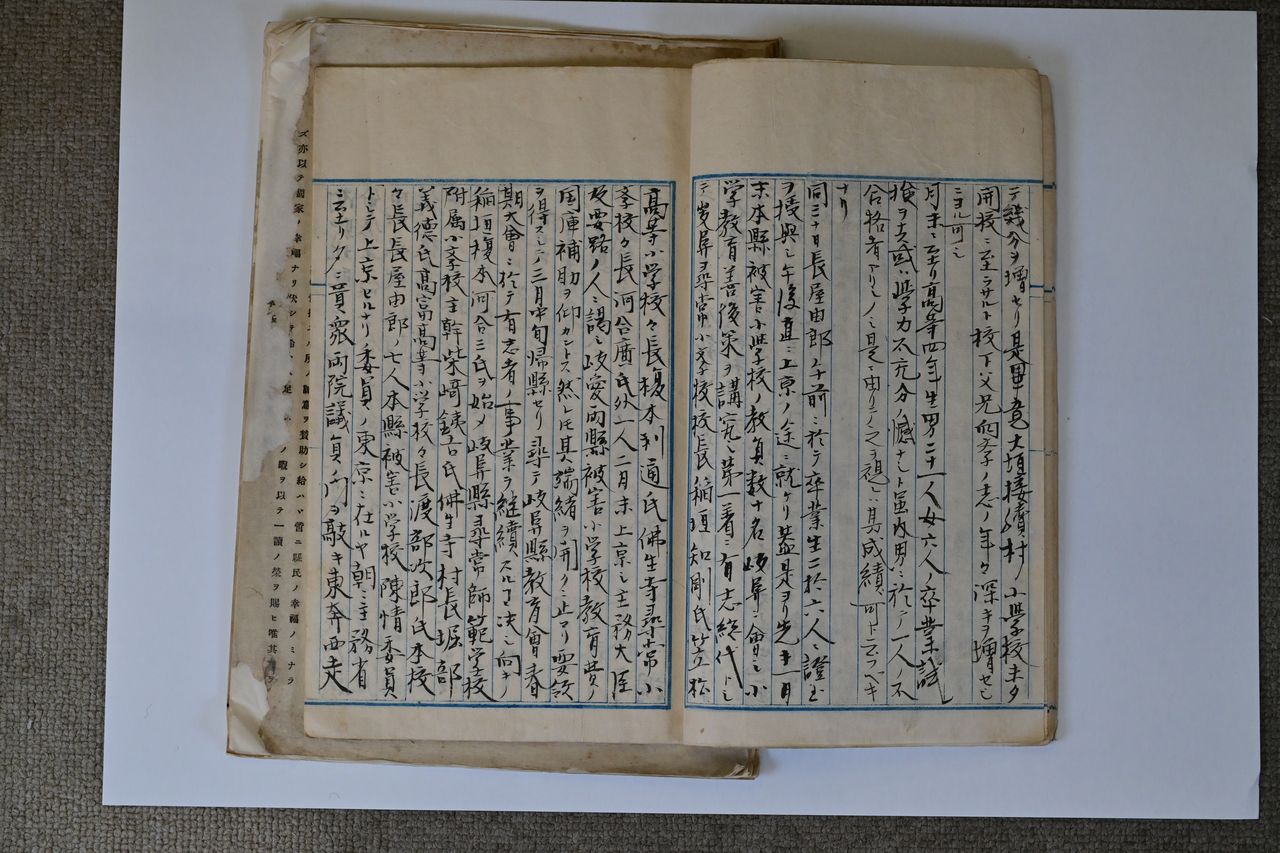 テ幾分ヲ増セリ是畢竟大垣接續村ノ小学校未タ
開校ニ至ラサルト校下父兄向学ノ志ノ年々深キヲ増セシ
ニヨル可シ
月末ニ至リ高等四年生男二十一人女六人ノ卒業試
験ヲ 或ハ学力不充分ノ憾ナシト 内男ニ於テ一人ノ不
合格者アリシノミ是ニ由リテ之ヲ視レハ其成績可ト云フベキ
ナリ
同三十日長屋由郎ノ午前ニ於テ卒業生二十六人ニ證書
ヲ授與シ午後直ニ上京ノ途ニ就ケリ蓋是ヨリ先キ一月
末本縣被害小学校ノ教員数十名岐阜ニ會シ小
学教育善後策ヲ講究シ第一着ニ有志総代トシ
テ岐阜尋常小学校校長稲垣知剛氏笠松
高等小学校々長榎本利通氏佛生寺尋常小
学校々長河合 氏外一人二月末上京シ主務大臣
及要路ノ人ニ謁シ岐愛両縣被害小学校教育費ノ
国庫補助ヲ仰カントス然レトモ其端緒ヲ開クニ止マリ要領
ヲ得スシテ三月中旬帰縣セリ尋テ岐阜縣教育會春
期大會ニ於テ有志者ノ事業ヲ継續スルコトニ決シ向キノ
稲垣榎本河合三氏ヲ始メ岐阜縣尋常師範学校
附属小学校主幹柴﨑鉄吉氏佛生寺村長堀部
義徳氏高富高等小学校々長渡部次郎氏本校
々長長屋由郎ノ七人本縣被害小学校陳情委員
トシテ上京セルナリ委員ノ東京ニ在ルヤ朝ニ主務省
ニ至リタニ貴衆両院議員ノ門ヲ敲キ東奔西走
ヲ賛助シ給ハヾ啻ニ縣民ノ幸福ノミナラ
ズ亦以テ國家ノ幸福ナリ
ノ暇ヲ以テ一讀ノ榮ヲ賜ヒ